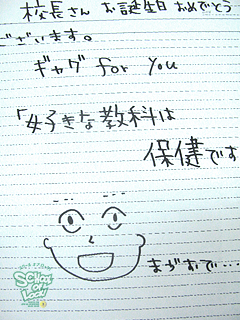 校長さん お誕生日 おめでとう
ございます。
ギャグ for You
「好きな教科は
保健です
まがおで…
SCHOOL
OF LOCK!